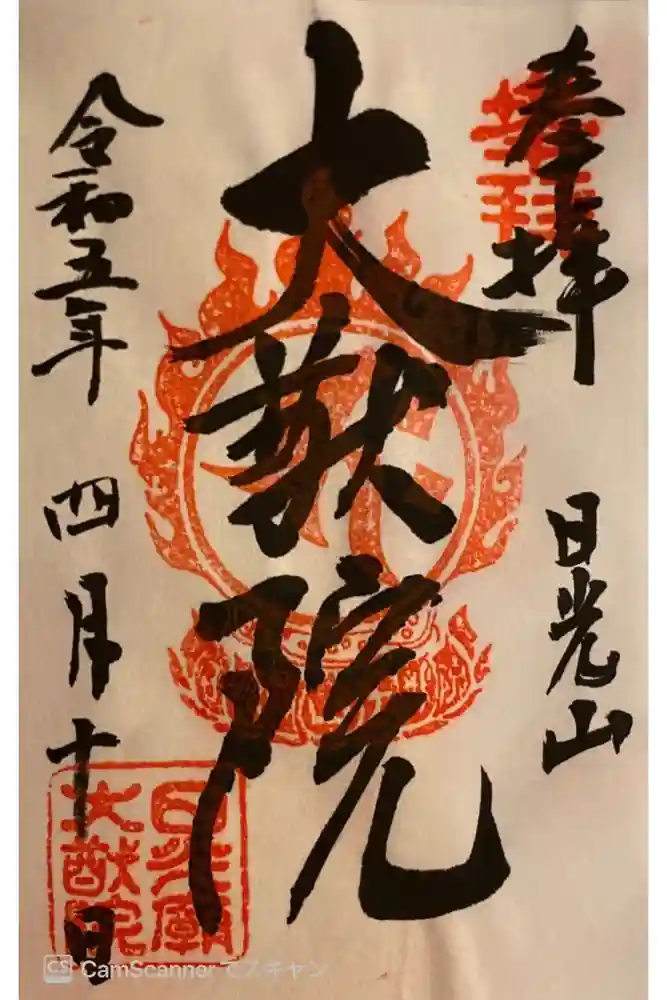 奉拝
日光山
大猷院
令和五年四月十日
日光廟
大猷院
CS CamScanner でスキャン